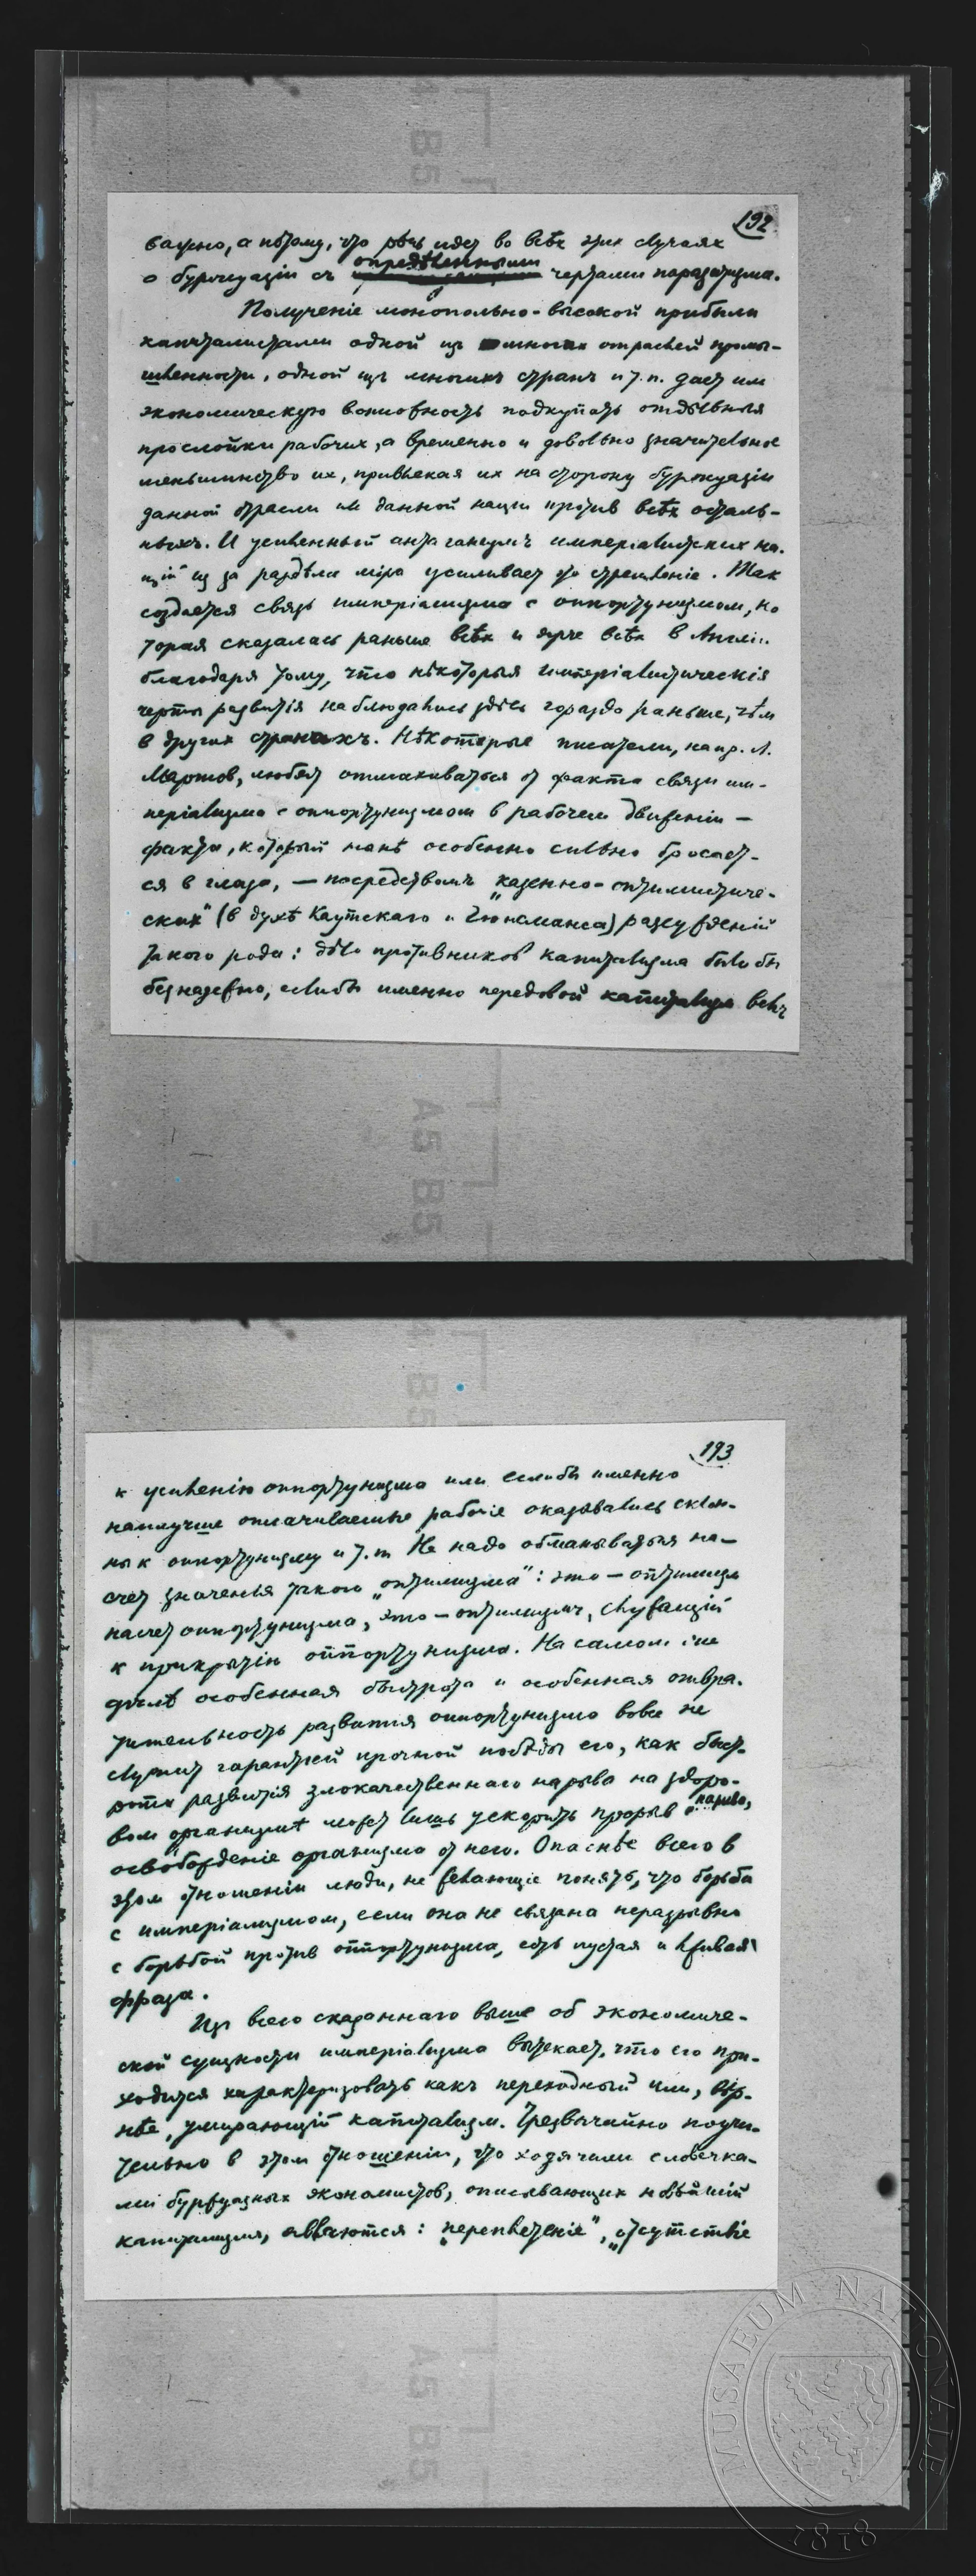 192
важно, а потому, что рѣчь идет во всѣх этих случаях
опредѣленными
о буржуазіи съ чертами паразитизма.
Полученіе монопольно-высокой прибыли
капиталистами одной из многих отраслей промы-
шленности, одной изъ многихъ странъ и т. п. дает им
экономическую возможность подкупать отдѣльныя
прослойки рабочих, а временно и довольно значительное
меньшинство их, привлекая их на сторону буржуазіи
данной отрасли или данной нации против всѣх осталь-
ныхъ. И усиленный антагонизмъ имперіалистских на-
цій из за раздѣла міра усиливает это стремленіе. Так
создается связь имперіализма с оппортунизмом, ко
торая сказалась раньше всѣх и ярче всѣх в Англіи
благодаря тому, что нѣкоторыя имперіалистическія
черты развитія наблюдались здѣсь гораздо раньше, чѣм
в других странахъ. Нѣкоторые писатели, напр. Л.
Мартов, любят отмахиваться от факта связи им-
періализма с оппортунизмом в рабочем движеніи —
факта, который нынѣ особенно сильно бросает-
ся в глаза, — посредствомъ „казенно-оптимистиче-
ских" (в духѣ Каутскаго и Гюисманса) разсужденій
такого рода: дѣло противников капитализма было бы
безнадежно, если бы именно передовой капитализм велъ
193
к усиленію оппортунизма или если бы именно
наилучше оплачиваемые рабочіе оказывались склон-
ны к оппортунизму и т. п. Не надо обманываться на-
счет значенья такого „оптимизма": это — оптимизм
насчет оппортунизма, это — оптимизм, служащій
к прикрытію оппортунизма. На самом же
дѣлѣ особенная быстрота и особенная отвра-
тительность развития оппортунизма вовсе не
служит гарантией прочной побѣды его, как быст-
рота развитія злокачественнаго нарыва на здоро-
вом организмѣ может лишь ускорить прорыв нарыва,
освобожденіе организма от него. Опаснѣе всего в
этом отношеніи люди, не желающіе понять, что борьба
с имперіализмом, если она не связана неразрывно
с борьбой против оппортунизма, есть пустая и лживая
фраза.
Из всего сказаннаго выше об экономиче-
ской сущности имперіализма вытекает, что его при-
ходится характеризовать какъ переходный или, вѣр-
нѣе, умирающій капитализм. Чрезвычайно поучи-
тельно в этом отношеніи, что ходячими словечка-
ми буржуазных экономистов, описывающих новѣйшій
капитализм, являются: „переплетеніе", „отсутствіе
A5 B5
A5 B5
MUSAEUM NATIONALE
1818